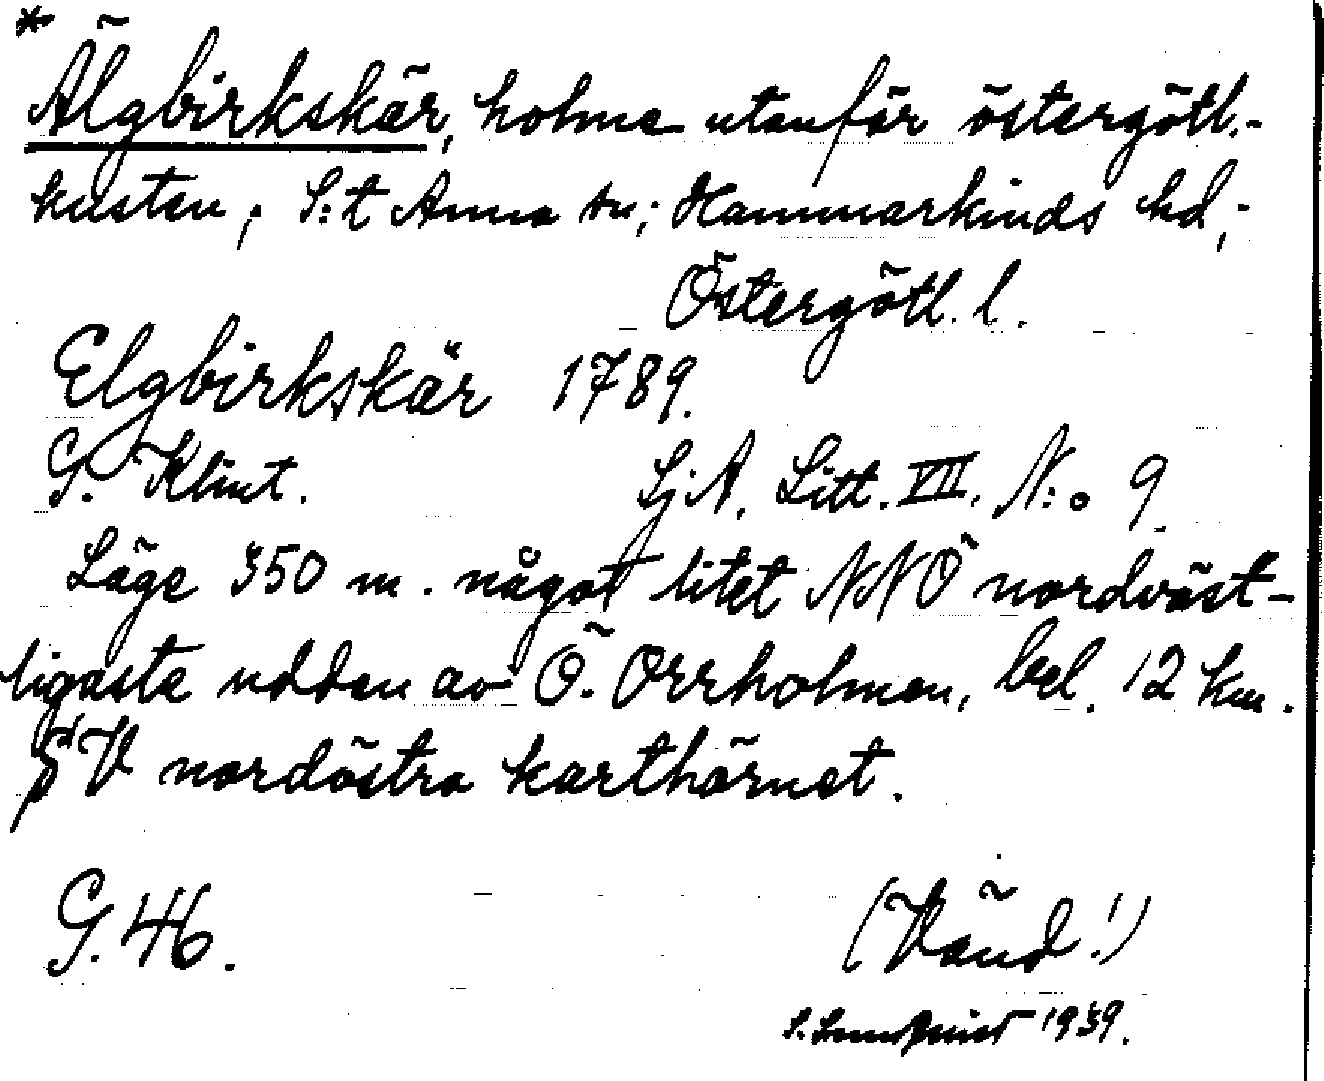 *
Älgbirkskär, holme utanför östergötl.-
kusten, S:t Anna sn; Hammarkinds hd,-
Östergötl. l.
Elgbirkskär 1789.
G. Klint. SjA. Litt. VII. N:o 9
Läge 350 m. något litet NNÖ nordväst-
ligaste udden av Ö. Orrholmen, bel. 12 km.
SV nordöstra karthörnet.
G. 46. (Vänd!)
S. Lundquist 1939.